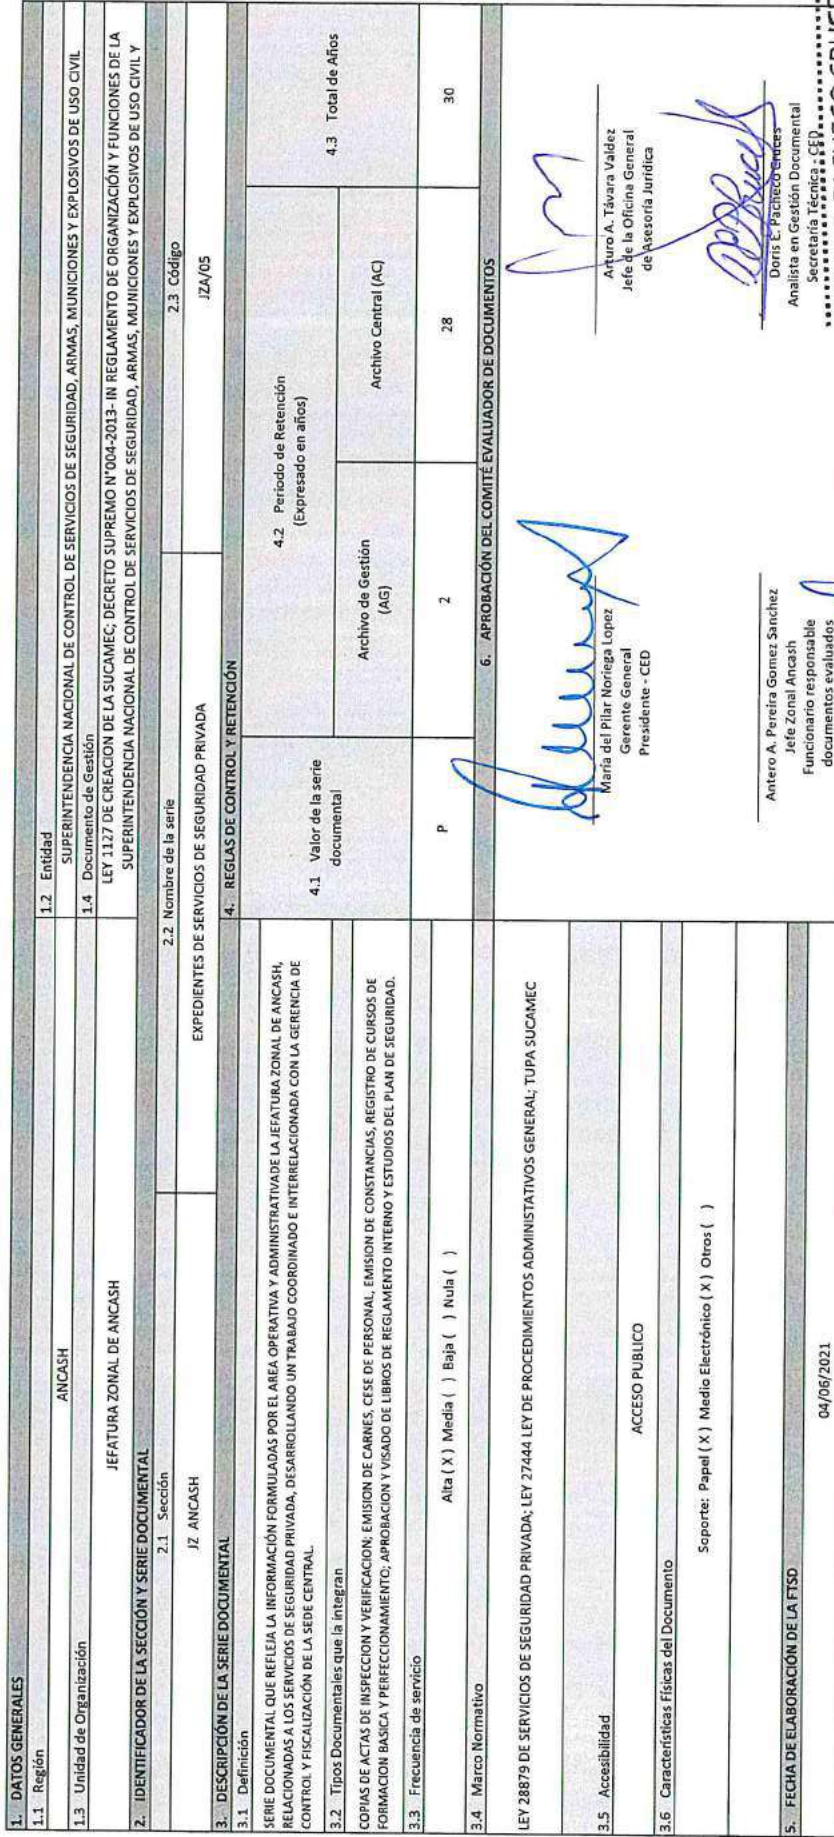 1. DATOS GENERALES
1.1 Región
ANCASH
1.2 Entidad
SUPERINTENDENCIA NACIONAL DE CONTROL DE SERVICIOS DE SEGURIDAD, ARMAS, MUNICIONES Y EXPLOSIVOS DE USO CIVIL
1.3 Unidad de Organización
JEFATURA ZONAL DE ANCASH
1.4 Documento de Gestión
LEY 1127 DE CREACION DE LA SUCAMEC; DECRETO SUPREMO N°004-2013- IN REGLAMENTO DE ORGANIZACIÓN Y FUNCIONES DE LA
SUPERINTENDENCIA NACIONAL DE CONTROL DE SERVICIOS DE SEGURIDAD, ARMAS, MUNICIONES Y EXPLOSIVOS DE USO CIVIL Y
2. IDENTIFICADOR DE LA SECCIÓN Y SERIE DOCUMENTAL
2.1 Sección
JZ ANCASH
2.2 Nombre de la serie
EXPEDIENTES DE SERVICIOS DE SEGURIDAD PRIVADA
2.3 Código
JZA/05
3. DESCRIPCIÓN DE LA SERIE DOCUMENTAL
3.1 Definición
SERIE DOCUMENTAL QUE REFLEJA LA INFORMACIÓN FORMULADAS POR EL AREA OPERATIVA Y ADMINISTRATIVADE LA JEFATURA ZONAL DE ANCASH,
RELACIONADAS A LOS SERVICIOS DE SEGURIDAD PRIVADA, DESARROLLANDO UN TRABAJO COORDINADO E INTERRELACIONADA CON LA GERENCIA DE
CONTROL Y FISCALIZACIÓN DE LA SEDE CENTRAL.
3.2 Tipos Documentales que la integran
COPIAS DE ACTAS DE INSPECCION Y VERIFICACION; EMISION DE CARNES, CESE DE PERSONAL, EMISION DE CONSTANCIAS, REGISTRO DE CURSOS DE
FORMACION BASICA Y PERFECCIONAMIENTO; APROBACION Y VISADO DE LIBROS DE REGLAMENTO INTERNO Y ESTUDIOS DEL PLAN DE SEGURIDAD.
3.3 Frecuencia de servicio
Alta ( X ) Media ( ) Baja ( ) Nula ( )
3.4 Marco Normativo
LEY 28879 DE SERVICIOS DE SEGURIDAD PRIVADA; LEY 27444 LEY DE PROCEDIMIENTOS ADMINISTATIVOS GENERAL; TUPA SUCAMEC
3.5 Accesibilidad
ACCESO PUBLICO
3.6 Características Físicas del Documento
Soporte: Papel ( X ) Medio Electrónico ( X ) Otros ( )
5. FECHA DE ELABORACIÓN DE LA FTSD
04/06/2021
4. REGLAS DE CONTROL Y RETENCIÓN
4.1 Valor de la serie
documental
4.2 Periodo de Retención
(Expresado en años)
4.3 Total de Años
Archivo de Gestión
(AG)
Archivo Central (AC)
P
2
28
30
6. APROBACIÓN DEL COMITÉ EVALUADOR DE DOCUMENTOS
María del Pilar Noriega Lopez
Gerente General
Presidente - CED
Arturo A. Távara Valdez
Jefe de la Oficina General
de Asesoría Jurídica
Antero A. Pereira Gomez Sanchez
Jefe Zonal Ancash
Funcionario responsable
documentos evaluados
Doris E. Pacheco Cruces
Analista en Gestión Documental
Secretaría Técnica - CED